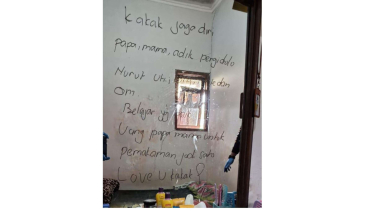 Kakak jaga diri
papa, mama, adik pergi dulu
Nurut Uti dan
Om
Belajar yg
Uang papa mama untuk
pemakaman jadi satu
Love U kakak